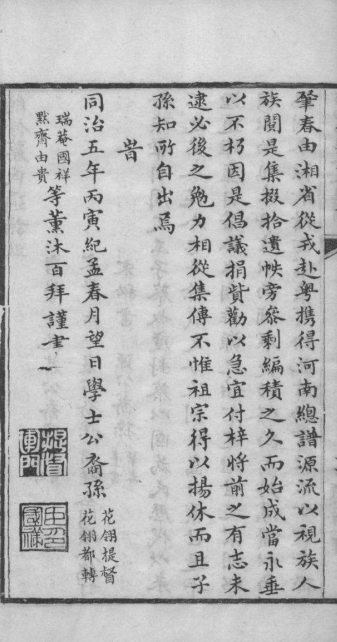 肇春由湘省從戎赴粵携得河南總譜源流以視族人
族閱是集掇拾遺帙旁參剩編積之久而始成當永垂
以不朽因是倡議捐貲勸以急宜付梓將前之有志未
逮必後之勉力相從集傳不惟祖宗得以揚休而且子
孫知所自出焉
旹
同治五年丙寅紀孟春月望日學士公裔孫
花翎提督
花翎都轉
瑞菴國祥
黙齊由貴
等薰沐百拜謹書
提督軍門